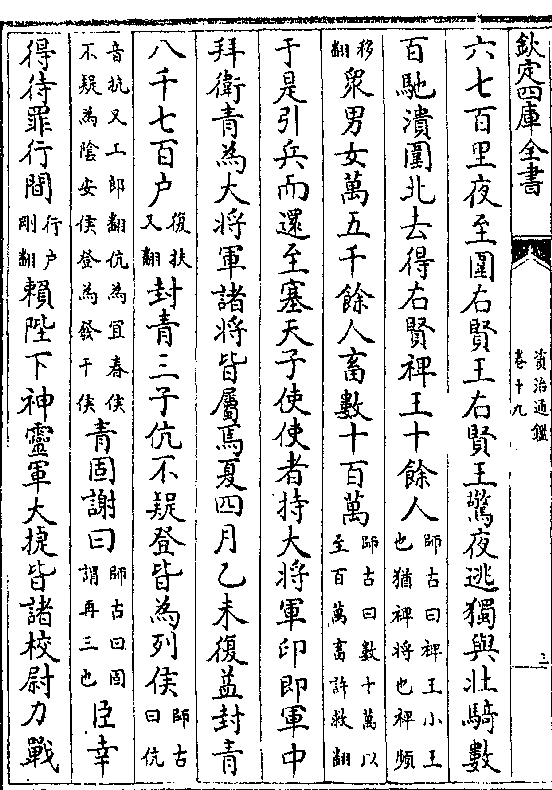 欽定四庫全書
資治通鑑
卷十九
三
六七百里夜至圍右賢王右賢王驚夜逃獨與壯騎數
百馳潰圍北去得右賢裨王十餘人師古曰裨王小王也猶裨將也裨頻
移翻眾男女萬五千餘人畜數十百萬師古曰數十萬以至百萬畜許救翻
于是引兵而還至塞天子使使者持大將軍印即軍中
拜衛青為大將軍諸將皆屬焉夏四月乙未復益封青
八千七百户復扶又翻封青三子伉不疑登皆為列侯師古曰伉
音抗又工郎翻伉為宜春侯不疑為陰安侯登為發干侯青固謝曰師古曰固謂再三也臣幸
得待罪行間行户剛翻賴陛下神靈軍大捷皆諸校尉力戰